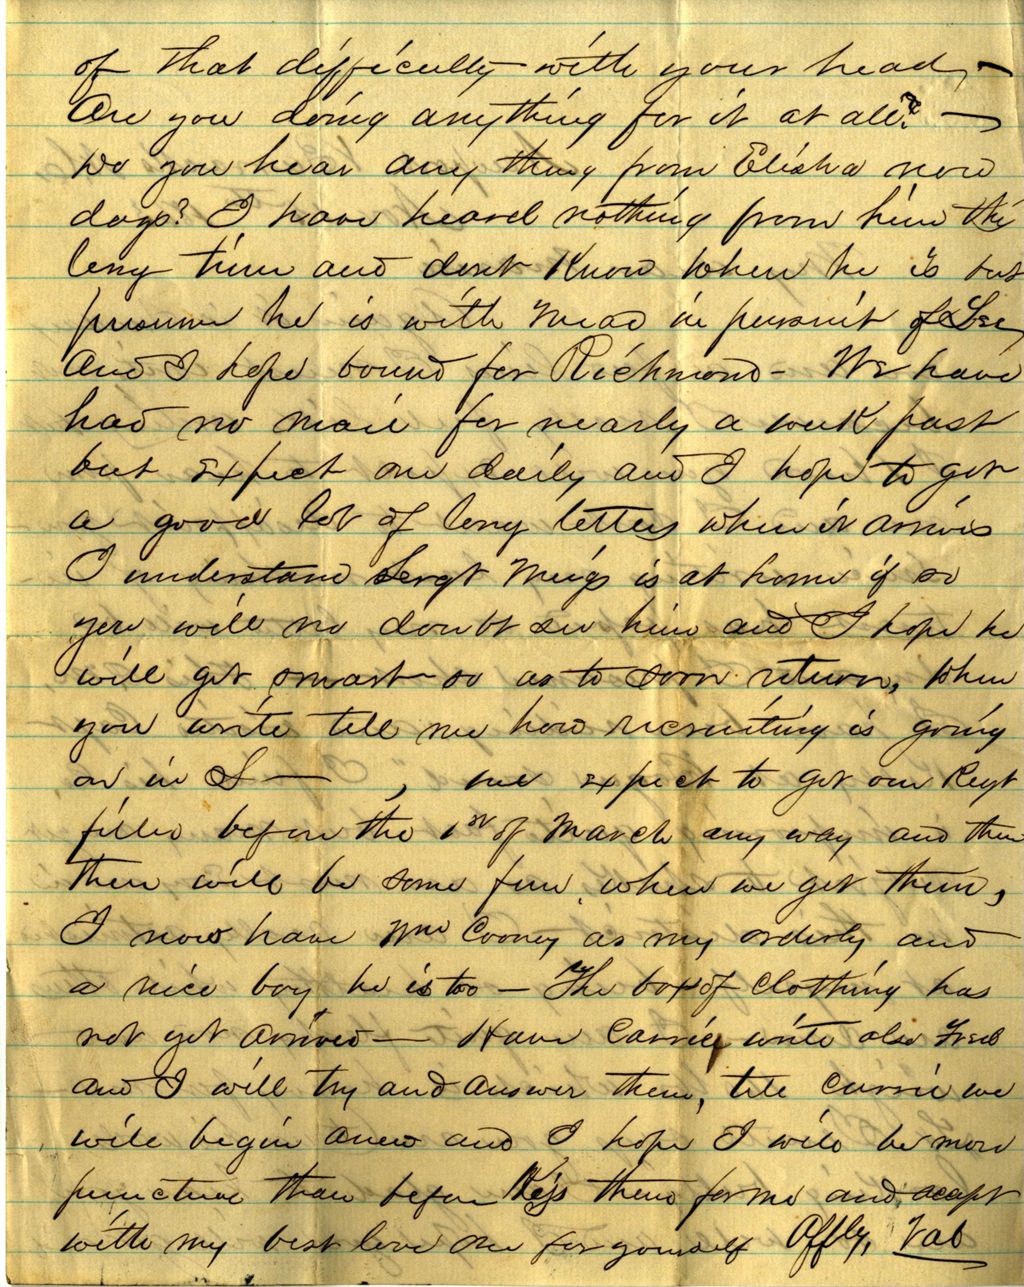 of that difficulty with your head, —
Are you doing anything for it at all? —
Do you hear any thing from Elisha now
days? I have heard nothing from him this
long time and dont Know when he is but
presume he is with Mead in pursuit of Lee
And I hope bound for Richmond - We have
had no mail for nearly a week past
but expect one daily and I hope to get
a good lot of long letters when it arrives
I understand Sergt Meigs is at home if so
you will no doubt see him and I hope he
will get smart so as to soon return, When
you write tell me how recruiting is going
on in S— , we expect to get our Regt
filled before the 1st of March any way and then
there will be some fun when we get them,
I now have Wm Cooney as my orderly and
a nice boy he is too — The box of clothing has
not yet arrived — Have Carrie write also Fred
and I will try and answer them, tell Carrie we
will begin anew and I hope I will be more
punctual than before Kiss them for me and accept
with my best love one for yourself Affly,